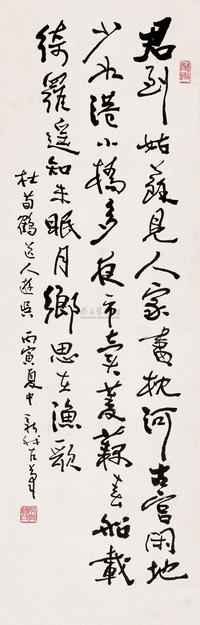 君到姑蘇見人家盡枕河古宮閑地
少水港小橋多夜市賣菱藕春船載
綺羅遥知未眠月鄉思在漁歌
杜荀鶴送人遊吳 丙寅夏中 新我左筆